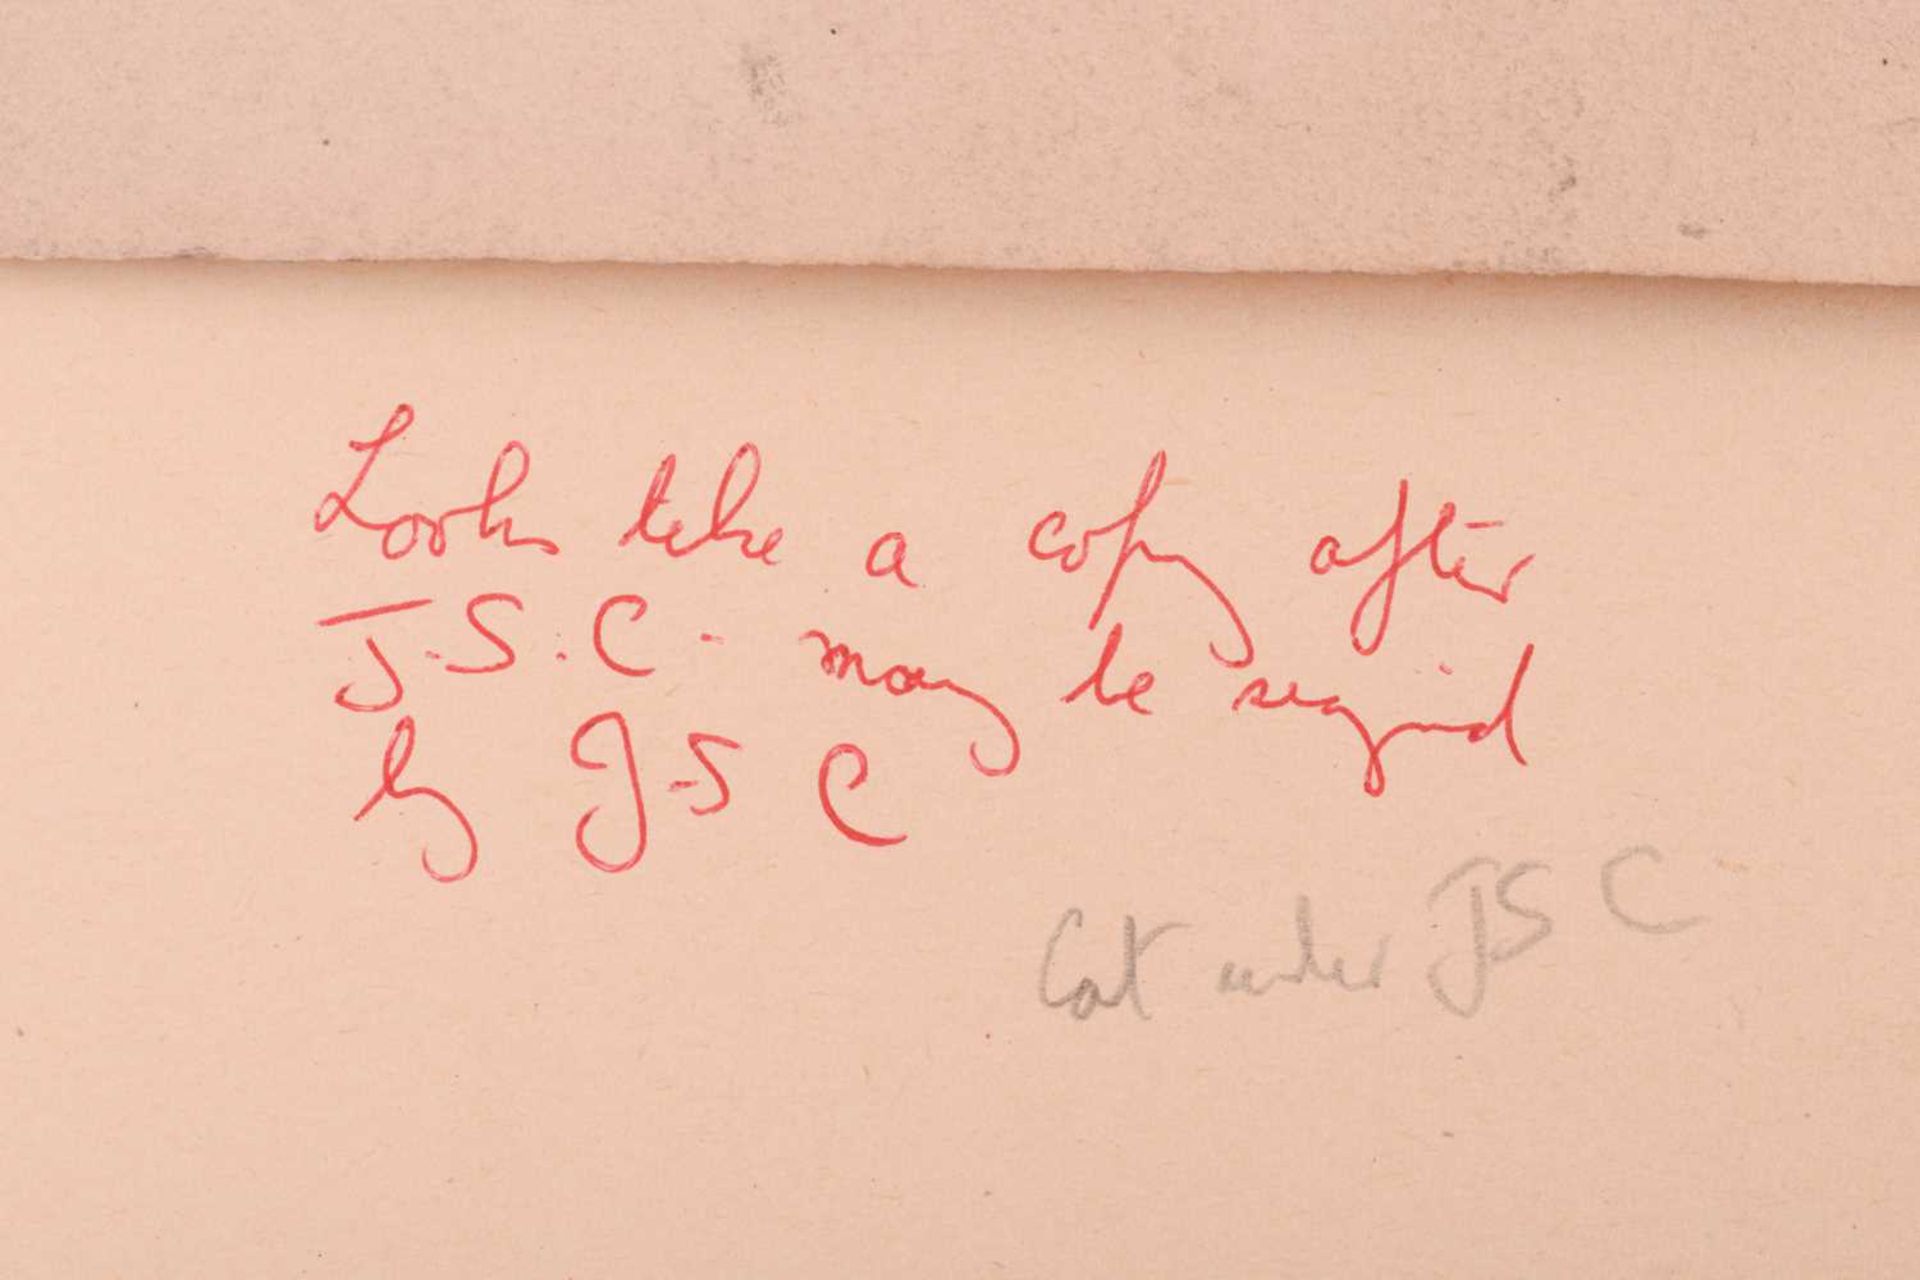 Looks like a copy after
J.S.C. may be signed
by J.S C
Cat under JSC